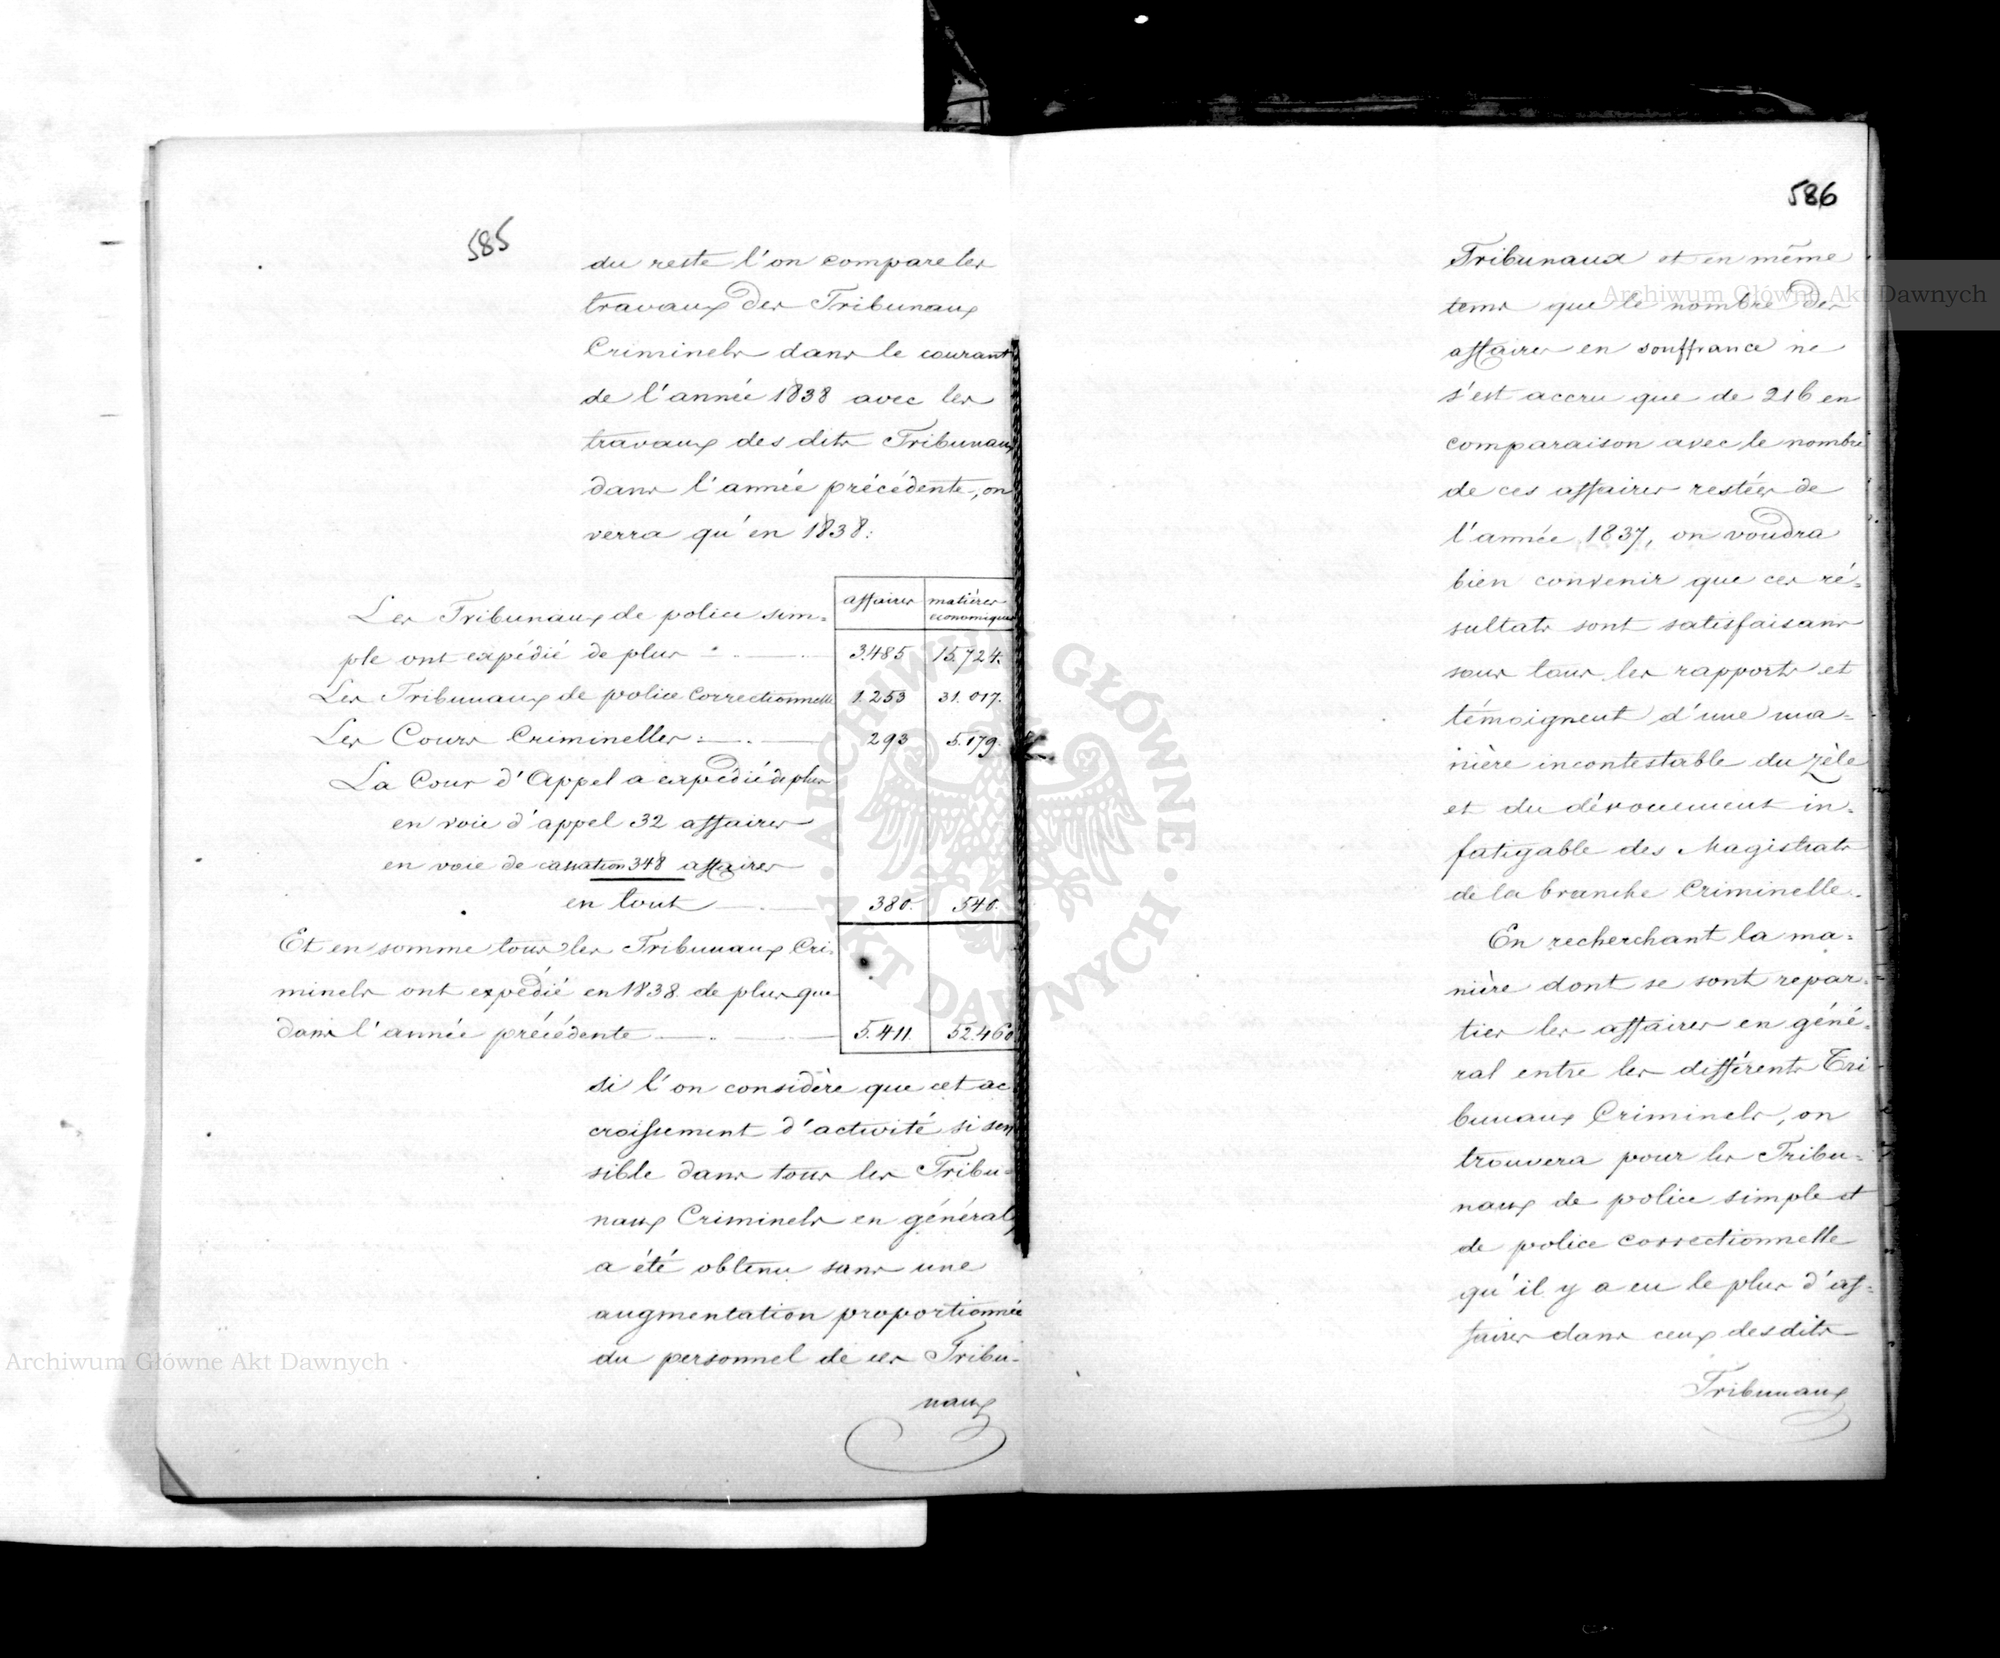 585
du reste l'on compare les
travaux des Tribunaux
Criminels dans le courant
de l'année 1838 avec les
travaux des dits Tribunaux
dans l'année précédente, on
verra qu'en 1838:
affaires matières economiques
Les Tribunaux de police sim=
ple ont expédié de plus 3485 15.724.
Les Tribunaux de police Correctionnelle 1.253 31.017.
Les Cours Criminelles 293 5.179.
La Cour d'Appel a expédié de plus
en voie d'appel 32 affaires
en voie de cassation 348 affaires
en tout 380. 540.
Et en somme tous les Tribunaux Cri=
minels ont expédié en 1838 de plus que
dans l'année précédente 5.411. 52.460
si l'on considère que cet ac
croissement d'activité si sen
sible dans tous les Tribu=
naux Criminels en général,
a été obtenu sans une
augmentation proportionnée
du personnel de ces Tribu-
naux
586
Tribunaux et en même
tems que le nombre des
affaires en souffrance ne
s'est accru que de 216 en
comparaison avec le nombre
de ces affaires restées de
l'année 1837, on voudra
bien convenir que ces ré=
sultats sont satisfaisans
sous tous les rapports et
témoignent d'une ma=
nière incontestable du zèle
et du dévouement in=
fatigable des Magistrats
de la branche Criminelle.
En recherchant la ma=
nière dont se sont repar=
ties les affaires en géné=
ral entre les différents Tri
bunaux Criminels, on
trouvera pour les Tribu=
naux de police simple et
de police correctionnelle
qu'il y a eu le plus d'af=
faires dans ceux desdits
Tribunaux
Archiwum Główne Akt Dawnych
Archiwum Główne Akt Dawnych
ARCHIWUM GŁÓWNE AKT DAWNYCH